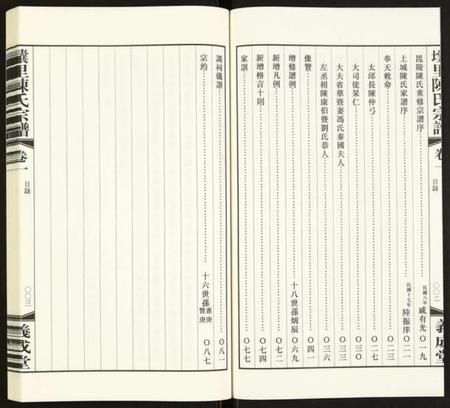 壠里陳氏宗譜
卷一
目錄
〇〇二
義成堂
毘陵陳氏重修宗譜序 民國八年 戚有光 〇一九
上城陳氏家譜序 民國十七年 陸振庠 〇二一
奉天敕命 〇二五
太邱長陳仲弓 〇二七
大司徒杲仁 〇三〇
大夫省華暨妻馮氏秦國夫人 〇三三
左丞相陳康伯暨劉氏恭人 〇三六
像贊 〇四一
增修譜例 十八世孫炳辰 〇六九
新增凡例 〇七二
新增格言十則 〇七四
家訓 〇七七
謁祠儀注 〇八一
宗約 十六世孫 惠庚 贊庚 〇八七
陳氏宗譜
卷一
目錄
〇〇三
義成堂